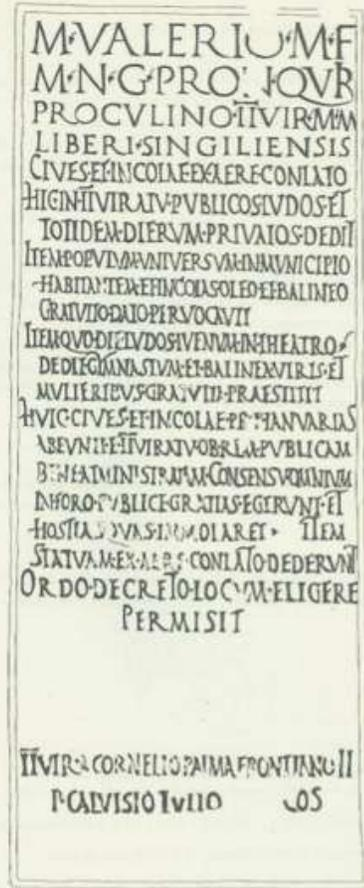 M·VALERIO·M·F
M·N·G·PRO I·QVIR
PROCVLINO·IIVIR·M·M
LIBERI·SINGILIENSIS
CIVES·ET·INCOLAE·EX·AERE·CONLATO
HIC·IN·IIVIRATV·PVBLICOS·LVDOS·ET
TOTIDEM·DIERVM·PRIVATOS·DEDIT
ITEM·POPVLVM·VNIVERSVM·IN·MVNICIPIO
HABITANTEM·ET·INCOLAS·OLEO·ET·BALINEO
GRATVITO·DATO·PERVOCAVIT
ITEM·QVO·DIE·LVDOS·IVENVM·IN·THEATRO
DEDIT·GIMNASIVM·ET·BALINEA·VIRIS·ET
MVLIERIBVS·GRATVITA·PRAESTITIT
HVIC·CIVES·ET·INCOLAE·PR·IANVARIAS
ABEVNTI·E·IIVIRATV·OB·R·PVBLICAM
BENE·ATMINISTRATAM·CONSENSV·OMNIVM
IN·FORO·PVBLICE·GRATIAS·EGERVNT·ET
HOSTIAS·QVAS·INMOLARET· ITEM
STATVAM·EX·AERE·CONLATO·DEDERVNT
ORDO·DECRETO·LOCVM·ELIGERE
PERMISIT
IIVIR·A·CORNELIO·PALMA·FRONTIANO II
P·CALVISIO TVLLO COS